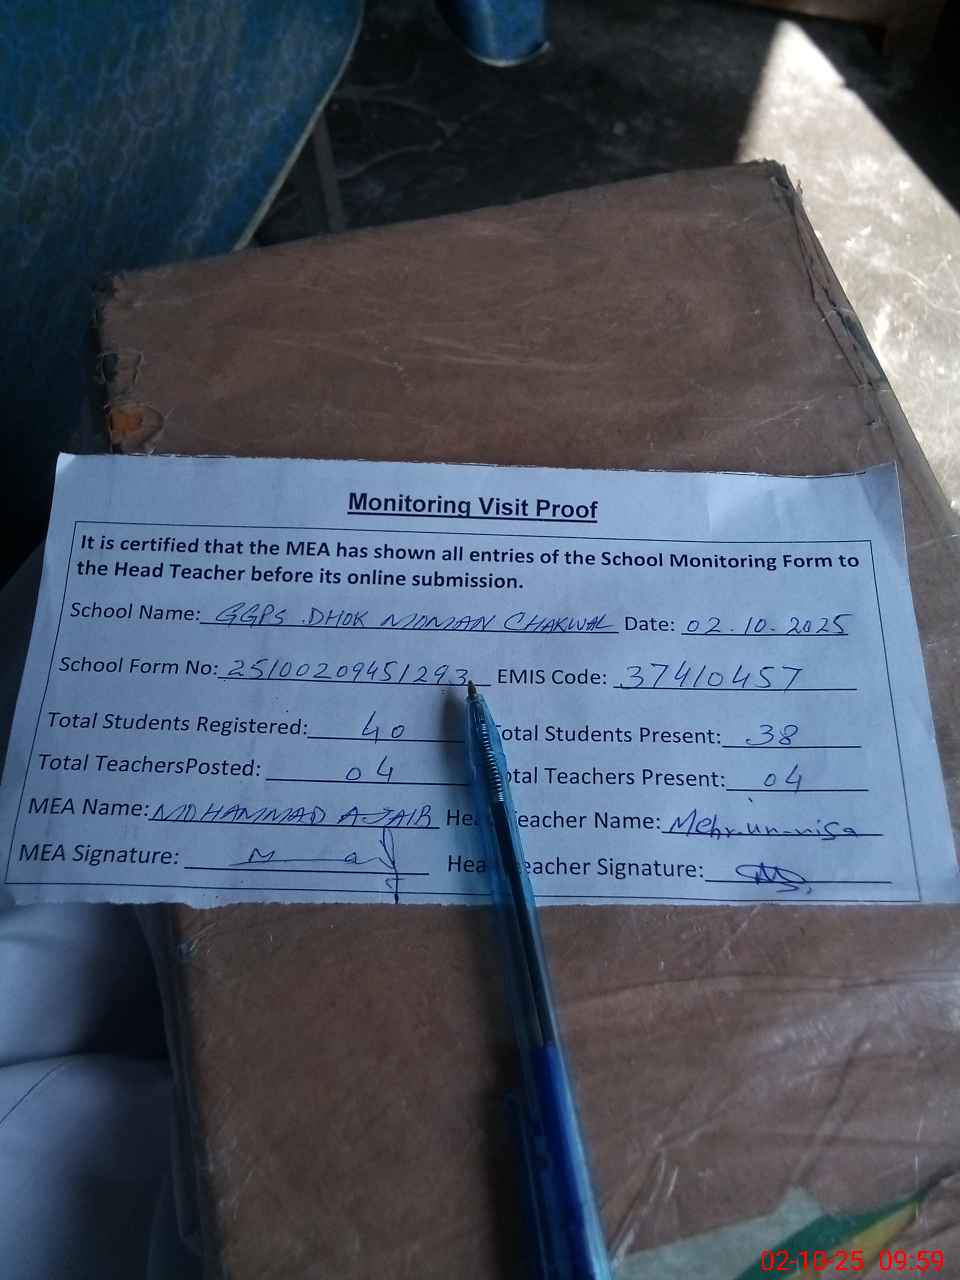 Monitoring Visit Proof
It is certified that the MEA has shown all entries of the School Monitoring Form to
the Head Teacher before its online submission.
School Name: GGPS DHOK MOMAN CHAKWAL Date: 02.10.2025
School Form No: 25100209451293 EMIS Code: 37410457
Total Students Registered: 40 Total Students Present: 38
Total TeachersPosted: 04 Total Teachers Present: 04
MEA Name: MOHAMMAD Head Teacher Name: Mehr-un-nisa
MEA Signature: Head Teacher Signature:
02-10-25 09:59